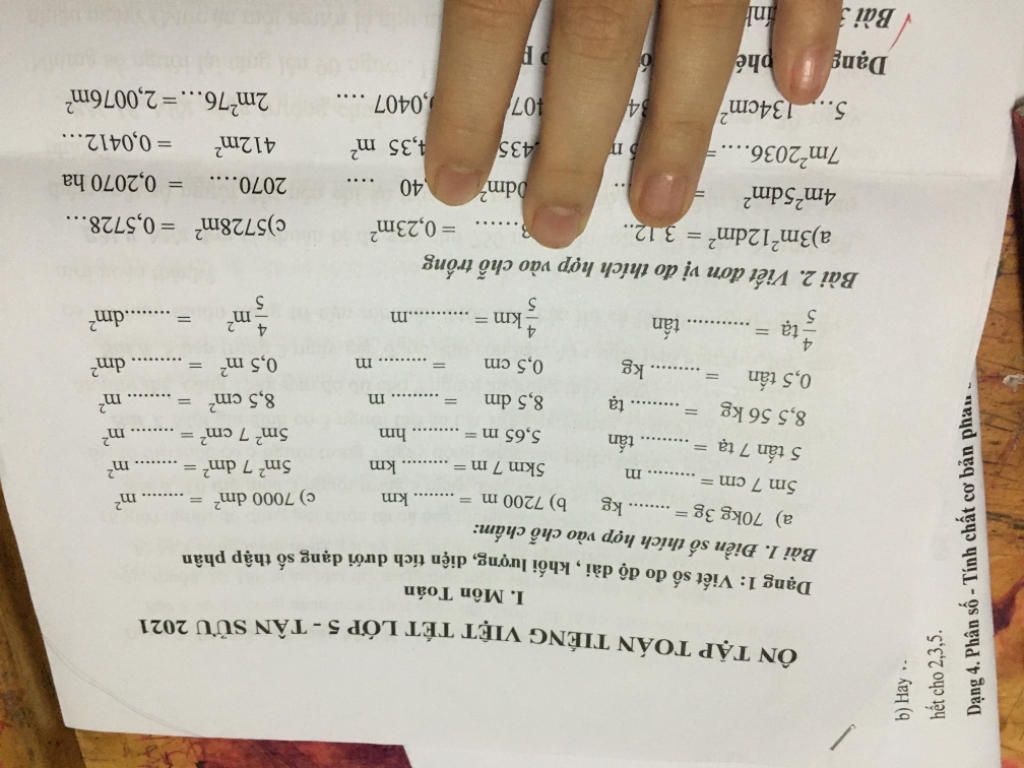 ÔN TẬP TOÁN TIẾNG VIỆT TẾT LỚP 5 - TÂN SỬU 2021
I. Môn Toán
Dạng 1: Viết số đo độ dài , khối lượng, diện tích dưới dạng số thập phân
Bài 1. Điền số thích hợp vào chỗ chấm:
a) 70kg 3g = ........ kg b) 7200 m = ......... km c) 7000 dm² = ......... m²
5m 7 cm = ........... m 5km 7 m = .......... km 5m² 7 dm² = .......... m²
5 tấn 7 tạ = .......... tấn 5,65 m = .......... hm 5m² 7 cm² = .......... m²
8,5 56 kg = .......... tạ 8,5 dm = .......... m 8,5 cm² = ......... m²
0,5 tấn = ......... kg 0,5 cm = .......... m 0,5 m² = ......... dm²
4/5 tạ = ............ tấn 4/5 km = ..............m 4/5 m² = .........dm²
Bài 2. Viết đơn vị đo thích hợp vào chỗ trống
a)3m²12dm² = 3,12... = 0,23m² c)5728m² = 0,5728...
4m²5dm² = 0dm² 40 .... 2070..... = 0,2070 ha
7m²2036.... = m 435 4,35 m² 412m² = 0,0412....
5... 134cm² 34 407 0,0407 .... 2m²76... = 2,0076m²
Dạng
Bài 3
b) Hay
hết cho 2,3,5.
Dạng 4. Phân số - Tính chất cơ bản phân